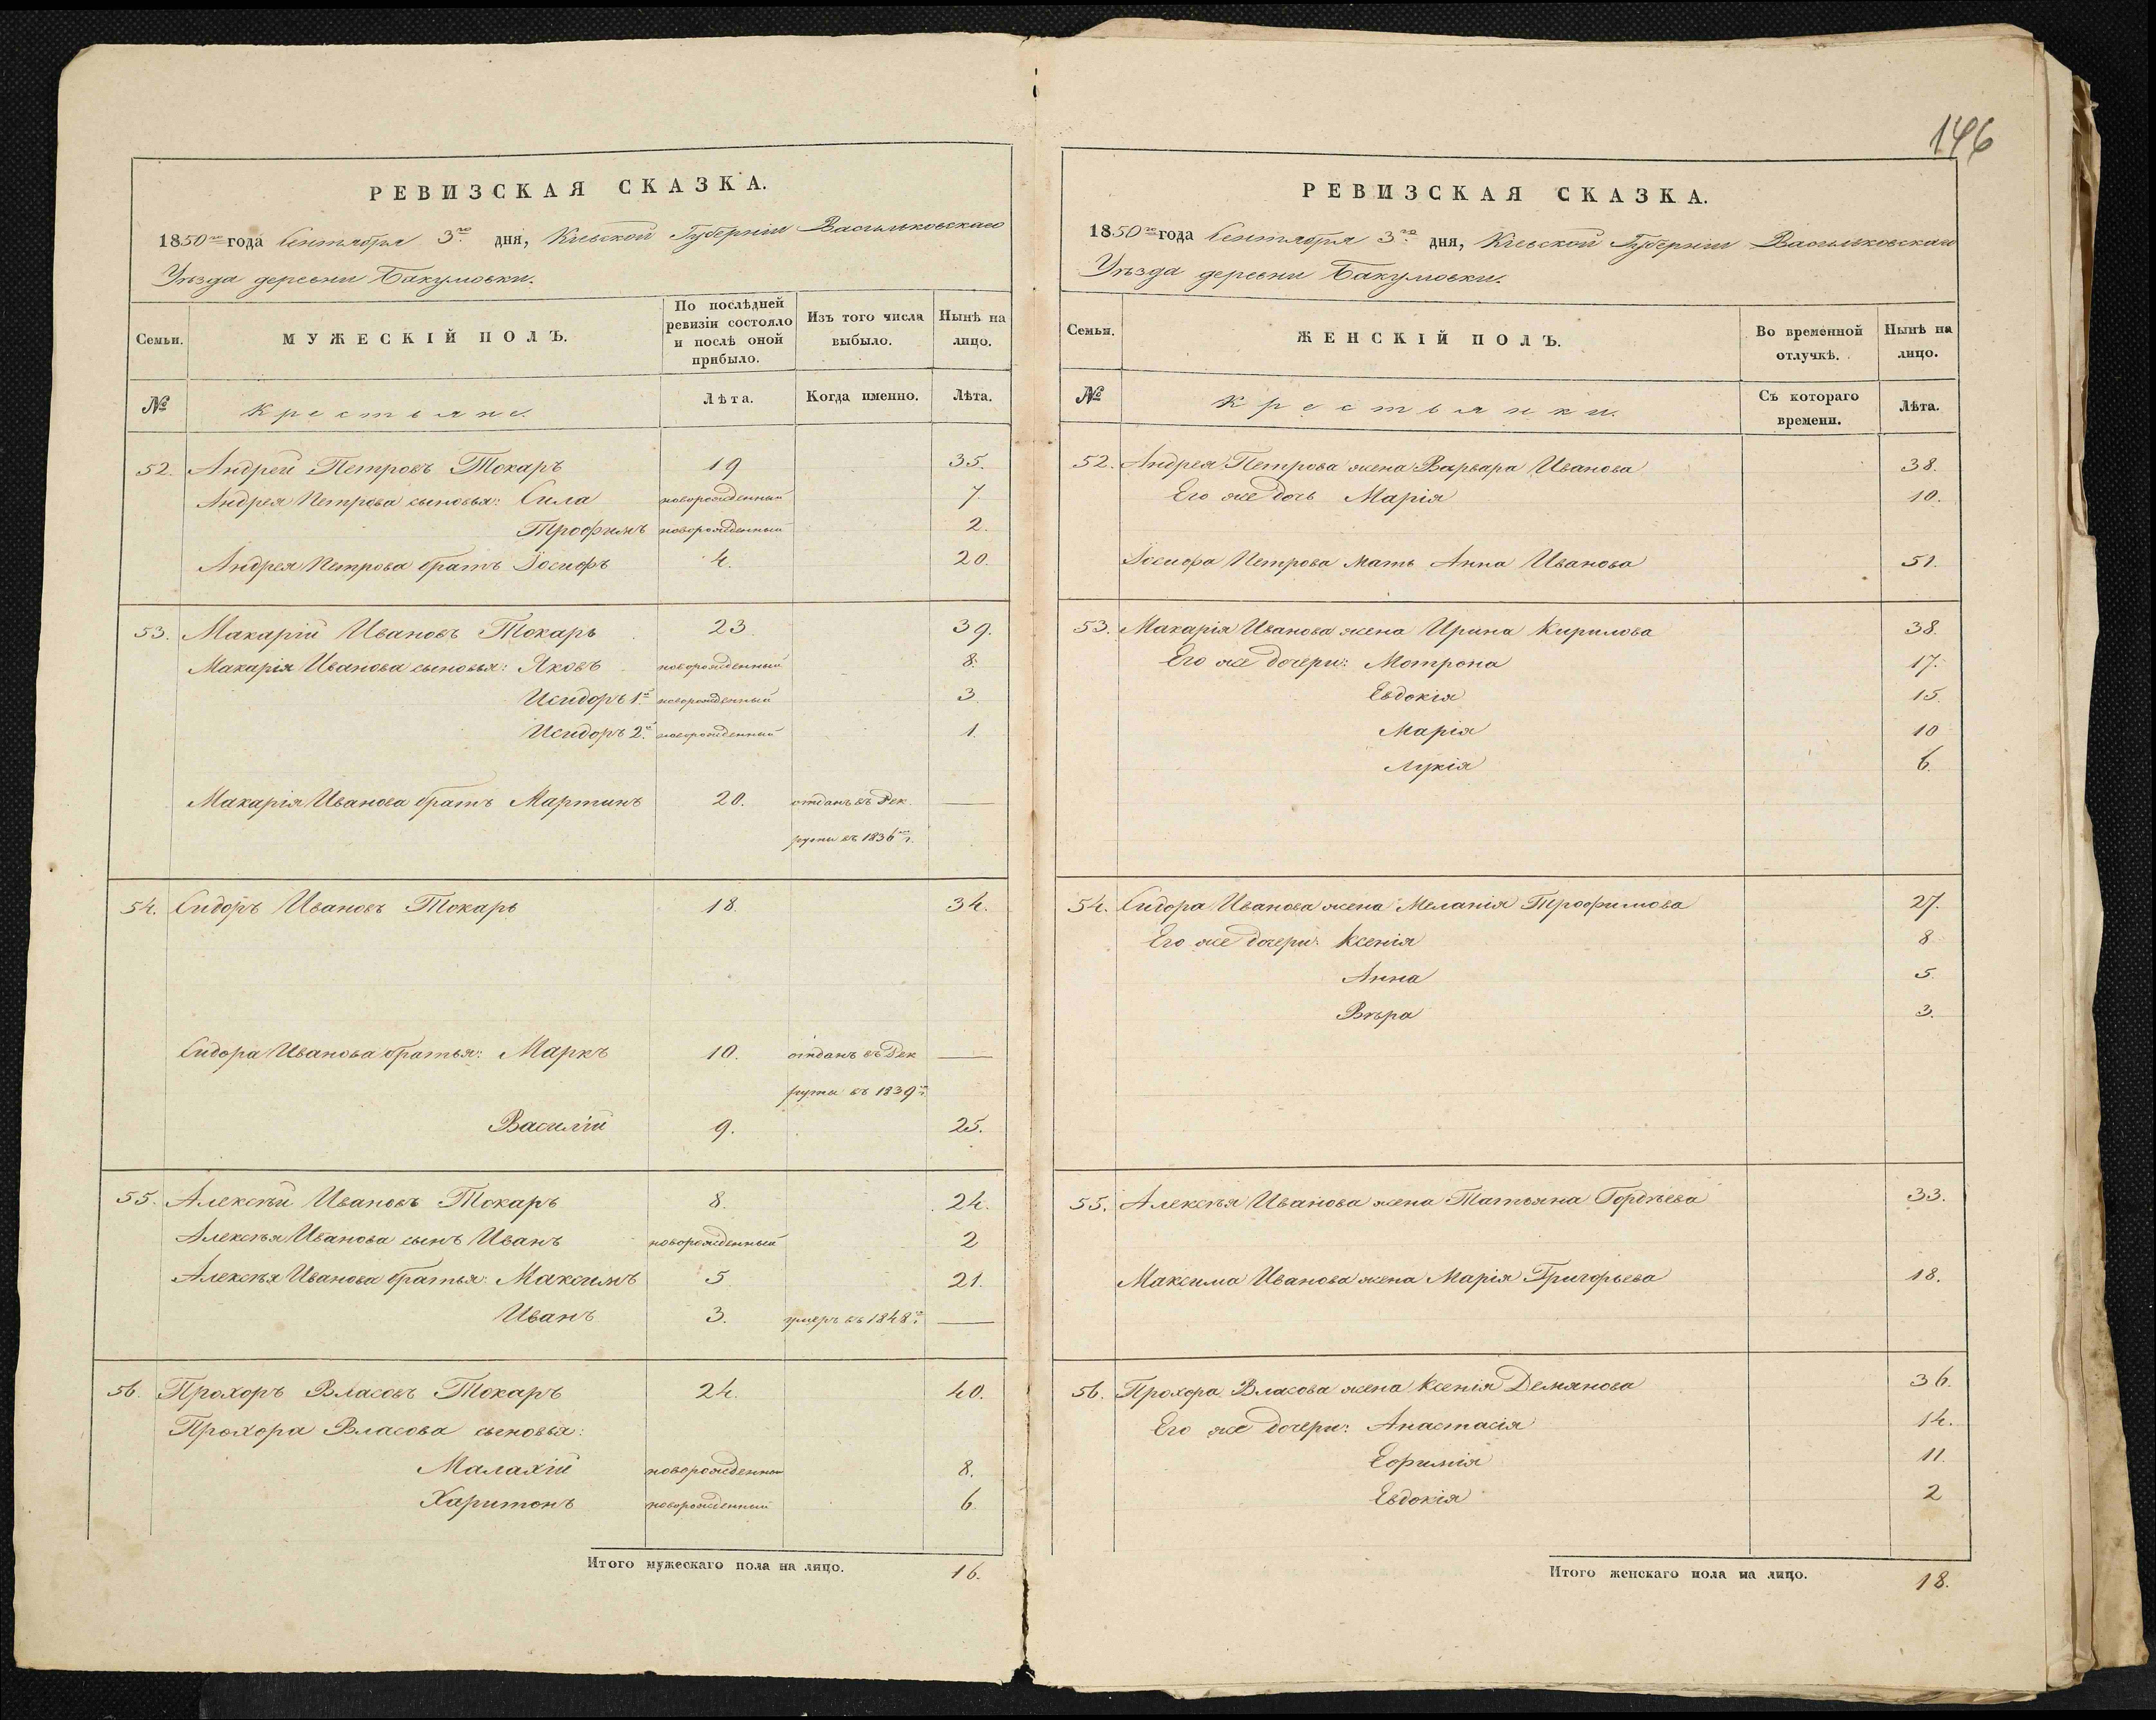 146
РЕВИЗСКАЯ СКАЗКА.
1850го года Сентября 3го дня, Кіевской Губерніи Васильковскаго
Уѣзда деревни Бакумовки.
Семьи. МУЖЕСКІЙ ПОЛЪ. По послѣдней ревизіи состояло и послѣ оной прибыло. Изъ того числа выбыло. Нынѣ на лицо.
№ Крестьяне. Лѣта. Когда именно. Лѣта.
52. Андрей Петровъ Токаръ 19 35.
Андрея Петрова сыновья: Сила новорожденный 7.
Трофимъ новорожденный 2.
Андрея Петрова братъ Іосифъ 4. 20.
53. Макарій Ивановъ Токарь 23 39.
Макарія Иванова сыновья: Яковъ новорожденный 8.
Исидоръ 1й новорожденный 3
Исидоръ 2й новорожденный 1.
Макарія Иванова братъ Мартинъ 20. отданъ въ Рек
руты въ 1836го г. —
54. Сидоръ Ивановъ Токарь 18. 34.
Сидора Иванова братья: Маркъ 10. отданъ въ Рек —
руты въ 1839 г.
Василій 9. 25.
55. Алексѣй Ивановъ Токаръ 8. 24.
Алексѣя Иванова сынъ Иванъ новорожденный 2
Алексѣя Иванова братья: Максимъ 5 21.
Иванъ 3. умеръ въ 1848 г. —
56. Прохоръ Власовъ Токаръ 24. 40.
Прохора Власова сыновья:
Малахій новорожденный 8.
Харитонъ новорожденный 6.
Итого мужескаго пола на лицо. 16.
РЕВИЗСКАЯ СКАЗКА.
1850го года Сентября 3го дня, Кіевской Губерніи Васильковскаго
Уѣзда деревни Бакумовки.
Семьи. ЖЕНСКІЙ ПОЛЪ. Во временной отлучкѣ. Нынѣ на лицо.
№ Крестьянки. Съ котораго времени. Лѣта.
52. Андрея Петрова жена Варвара Иванова 38.
Его же дочь Марія 10.
Іосифа Петрова мать Анна Иванова 51.
53. Макарія Иванова жена Ирина Кирилова 38.
Его же дочери: Мотрона 17.
Евдокія 15.
Марія 10
Лукія 6.
54. Сидора Иванова жена Меланія Трофимова 27.
Его же дочери: Ксенія 8
Анна 5.
Вѣра 3.
55. Алексѣя Иванова жена Татьяна Гордѣева 33.
Максима Иванова жена Марія Григорьева 18.
56. Прохора Власова жена Ксенія Демянова 36.
Его же дочери: Анастасія 14.
Ефимія 11.
Евдокія 2
Итого женскаго пола на лицо. 18.